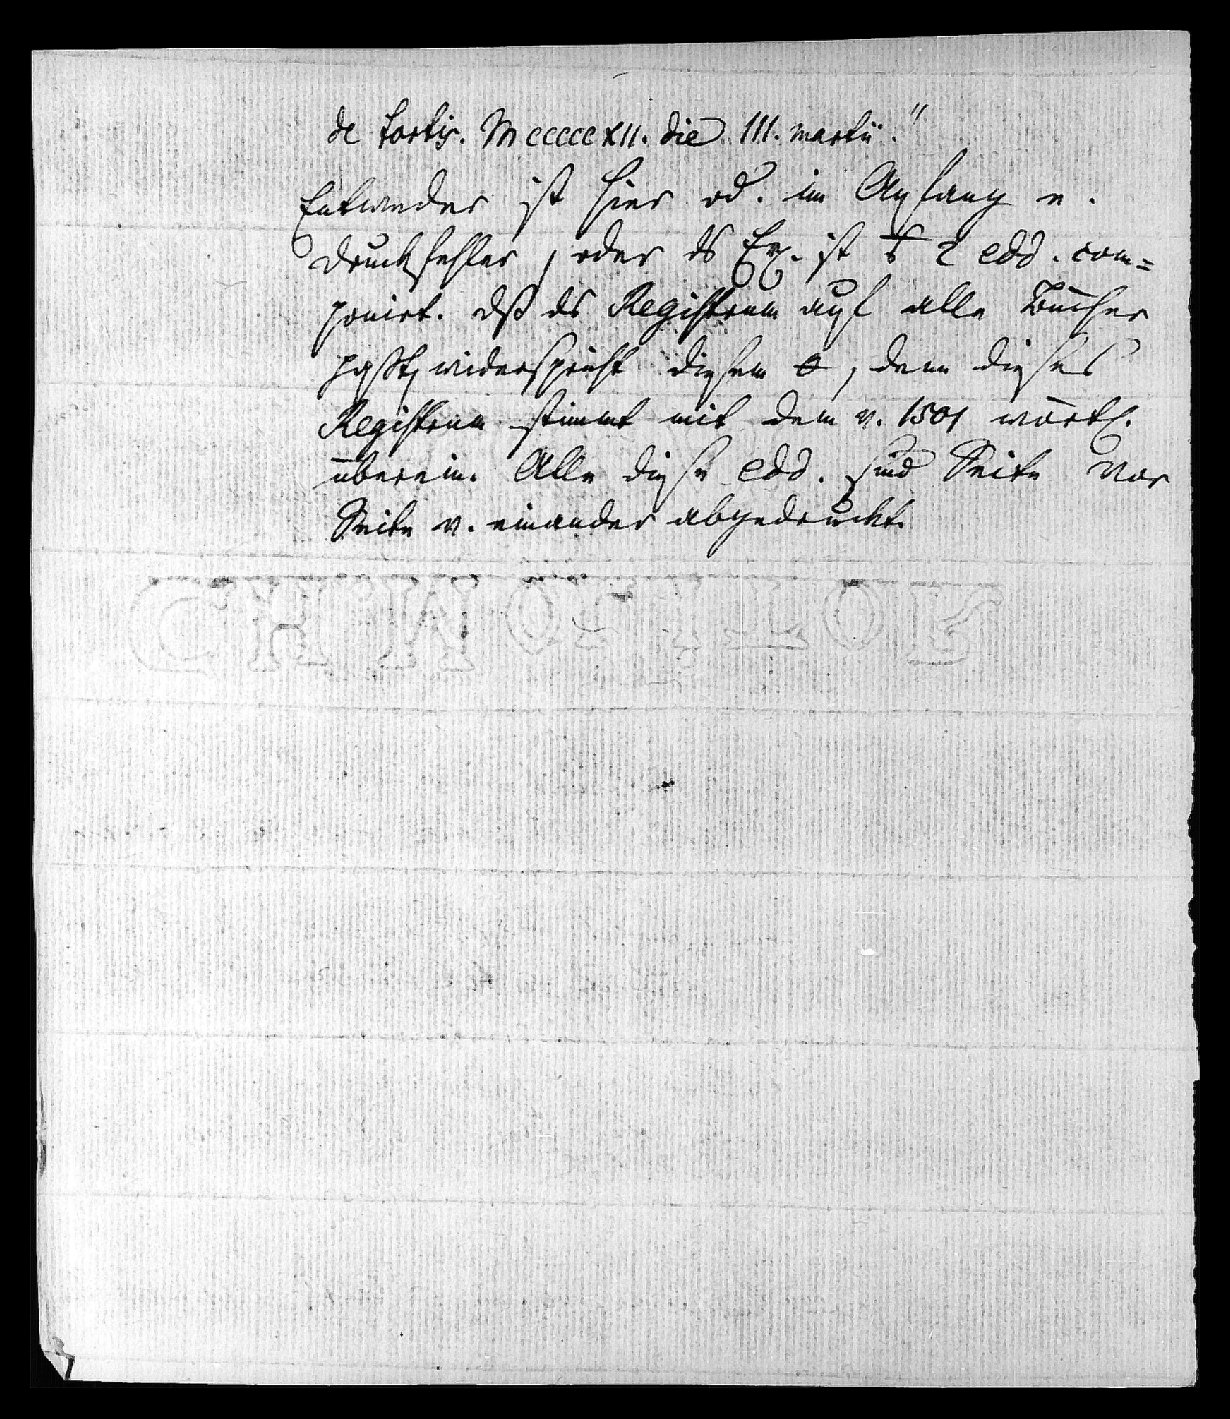 de tortis. MCCCCCXII. die III. martii."
Entweder ist hier od. im Anfang e.
Druckfehler, oder ds Ex. ist 2 edd. com=
ponirt. dß ds Registrum auf alle Bücher
paßt, widerspricht diesem, denn dieses
Registrum stimmt mit dem v. 1501 wörtl.
überein. Alle diese edd. sind Seite vor
Seite v. einander abgedruckt.